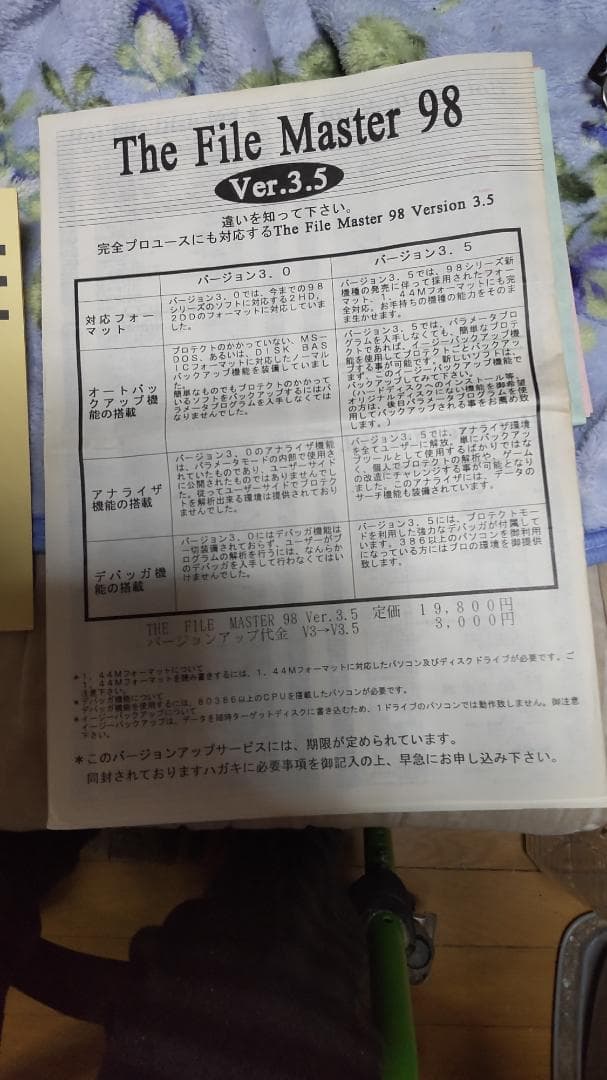 The File Master 98
Ver.3.5
違いを知って下さい。
完全プロユースにも対応するThe File Master 98 Version 3.5
バージョン3.0
バージョン3.5
対応フォー
マット
バージョン3.0では、今までの98
シリーズのソフトに対応する2HD,
2DDのフォーマットに対応していま
した。
バージョン3.5では、98シリーズ新
機種の発売に伴って採用されたフォー
マット、1.44Mフォーマットにも完
全対応。お手持ちの機種の能力をそのま
ま生かせます。
オートバッ
クアップ機
能の搭載
プロテクトのかかっていない、MS-
DOS、あるいは、DISK BAS
ICフォーマットに対応したノーマル
バックアップ機能を装備していまし
た。
簡単なものでもプロテクトのかかって
いるソフトをバックアップするにはパ
ラメータプログラムを入手しなくては
なりませんでした。
バージョン3.5では、パラメータプロ
グラムを入手しなくても、簡単なプロテ
クトであれば、イージーバックアップ機
能を使用してプロテクトごとバックアッ
プする事が可能です。新しいソフトは、
まず、このイージーバックアップ機能で
バックアップしてみて下さい。
(ハードディスクへのインストール等、
オリジナルディスクにない機能を御希望
の方は、後日パラメータプログラムを使
用してバックアップされる事をお薦め致
します。)
アナライザ
機能の搭載
バージョン3.0のアナライザ機能
は、パラメータモードの内部で使用さ
れていたものであり、ユーザーサイド
に公開されたものではありませんでし
た。従ってユーザーサイドでプロテク
トを解析出来る環境は提供されており
ませんでした。
バージョン3.5では、アナライザ環境
を全てユーザーに解放。単にバックアッ
プツールとして使用するばかりではな
く、個人でプロテクトの解析や、ゲーム
の改造にチャレンジする事が可能となり
ました。このアナライザには、データの
サーチ機能も装備されています。
デバッガ機
能の搭載
バージョン3.0にはデバッガ機能は
一切装備されておらず、ユーザーがプ
ログラムの解析を行うには、なんらか
のデバッガを入手して行わなくてはい
けませんでした。
バージョン3.5には、プロテクトモー
ドを利用した強力なデバッガが付属して
います。386以上のパソコンを御利用
になっている方にはプロの環境を御提供
致します。
THE FILE MASTER 98 Ver.3.5 定価 19,800円
バージョンアップ代金 V3→V3.5 3,000円
*1.44Mフォーマットについて
1.44Mフォーマットを読み書きするには、1.44Mフォーマットに対応したパソコン及びディスクドライブが必要です。ご
注意下さい。
*デバッガ機能について
デバッガ機能を使用するには、80386以上のCPUを搭載したパソコンが必要です。
*イージーバックアップについて
イージーバックアップは、データを随時ターゲットディスクに書き込むため、1ドライブのパソコンでは動作致しません。御注意
下さい。
*このバージョンアップサービスには、期限が定められています。
同封されておりますハガキに必要事項を御記入の上、早急にお申し込み下さい。